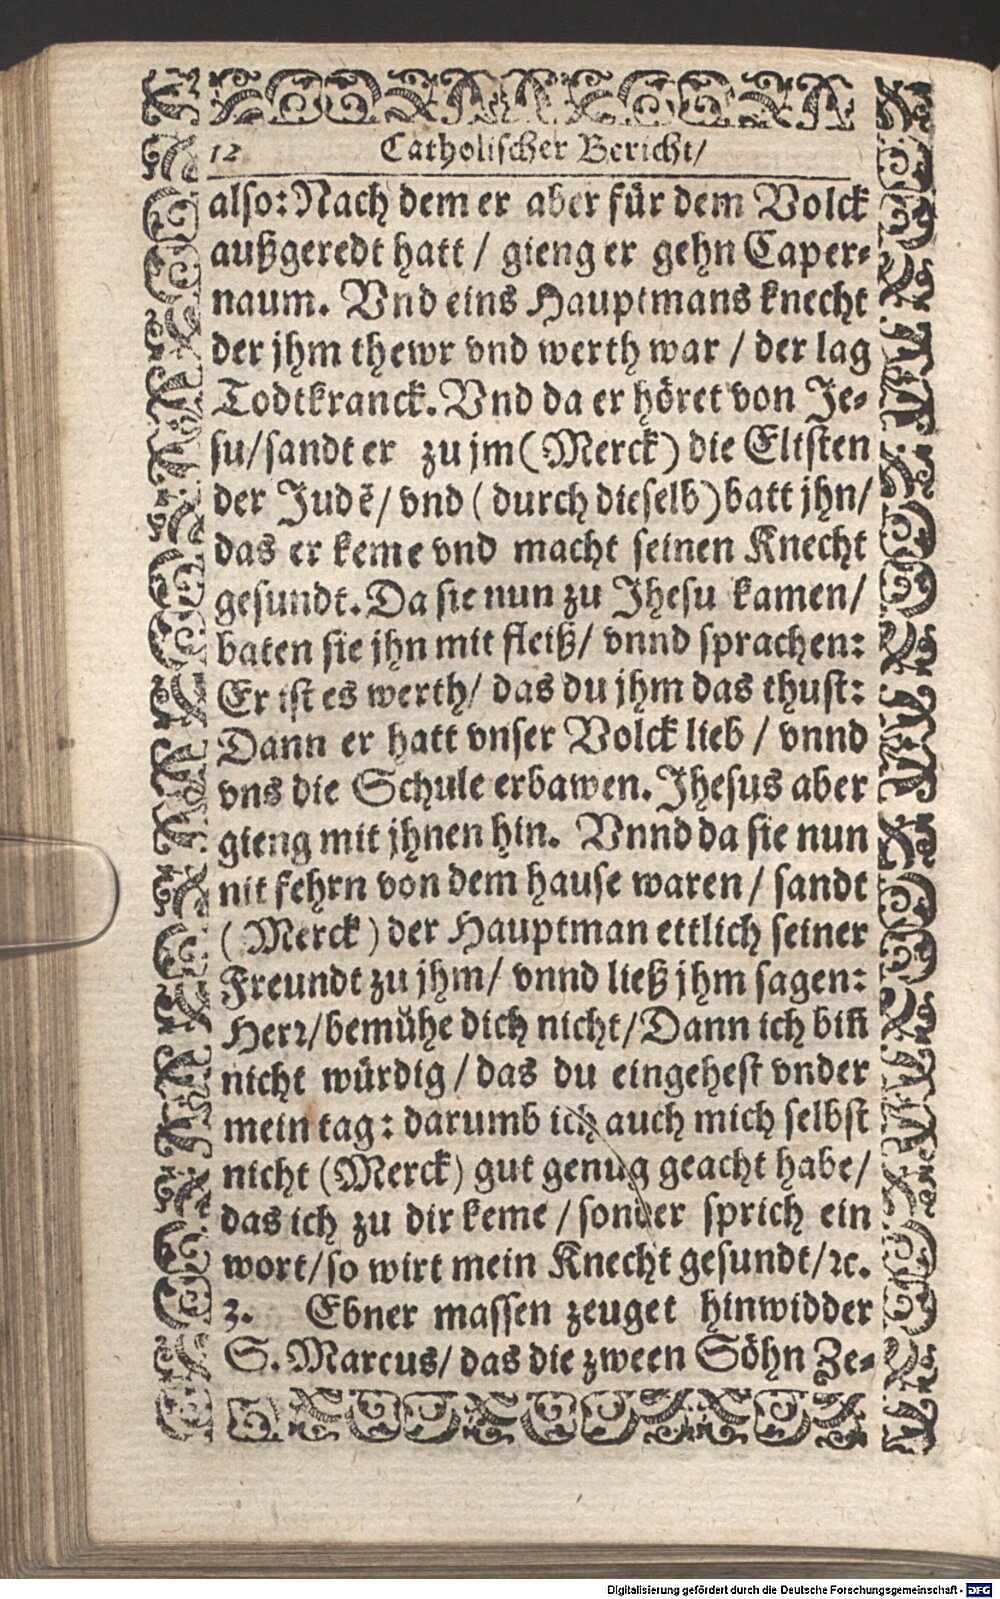 12 Catholischer Bericht/
also: Nach dem er aber für dem Volck
außgeredt hatt / gieng er gehn Caper-
naum. Vnd eins Hauptmans knecht
der jhm thewr vnd werth war / der lag
Todtkranck. Vnd da er höret von Je-
su/sandt er zu jm (Merck) die Eltsten
der Judẽ/ vnd (durch dieselb) batt jhn/
das er keme vnd macht seinen Knecht
gesundt. Da sie nun zu Jhesu kamen/
baten sie jhn mit fleiß/ vnnd sprachen:
Er ist es werth/ das du jhm das thust:
Dann er hatt vnser Volck lieb / vnnd
vns die Schule erbawen. Jhesus aber
gieng mit jhnen hin. Vnnd da sie nun
nit fehrn von dem hause waren/ sandt
(Merck) der Hauptman ettlich seiner
Freundt zu jhm/ vnnd ließ jhm sagen:
Herr/bemühe dich nicht/Dann ich biñ
nicht würdig/das du eingehest vnder
mein tag: darumb ich auch mich selbst
nicht (Merck) gut genug geacht habe/
das ich zu dir keme / sonder sprich ein
wort/so wirt mein Knecht gesundt/ꝛc.
3. Ebner massen zeuget hinwidder
S. Marcus/ das die zween Söhn Ze-
Digitalisierung gefördert durch die Deutsche Forschungsgemeinschaft - DFG